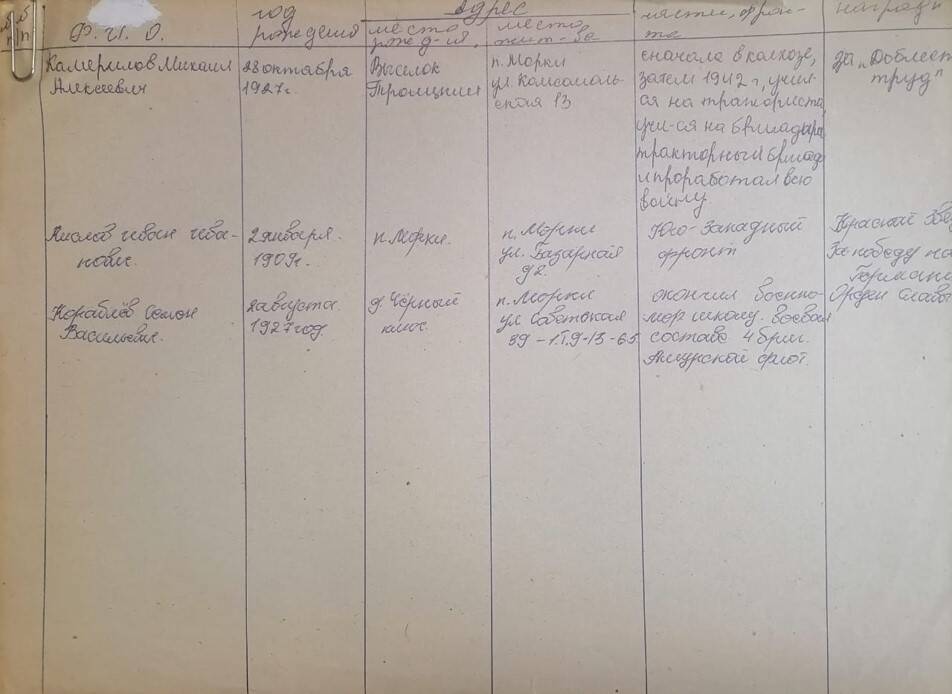 № п/п
Ф. И. О.
год рождения
Адрес
место рожд-ия,
место жит-ва
части, фрон-
та
наград
Камерилов Михаил
Алексеевич
28 октября
1927г.
Выселок
Троицкий
п. Морки
ул. Комсомоль-
ская 13
сначала в колхозе,
затем 1942 г, учил-
ся на тракториста
учи-ся на бригадира
тракторный бригад
и проработал всю
войну.
за „Доблест
труд"
Иван Ива-
нович.
2 января.
1909г.
п. Морки.
п. Морки
ул. Базарная
92
Юго-Западный
фронт
Красной Звез
За победу на
Герман
Кораблёв Семён
Васильевич.
2 августа.
1927 год.
д. Чёрный
ключ.
п. Морки
ул Советская
39 - 1. Т. 9-13-65
окончил военно-
мор школу. боевой
составе 4 бриг.
Амурской флот.
Орден Славы